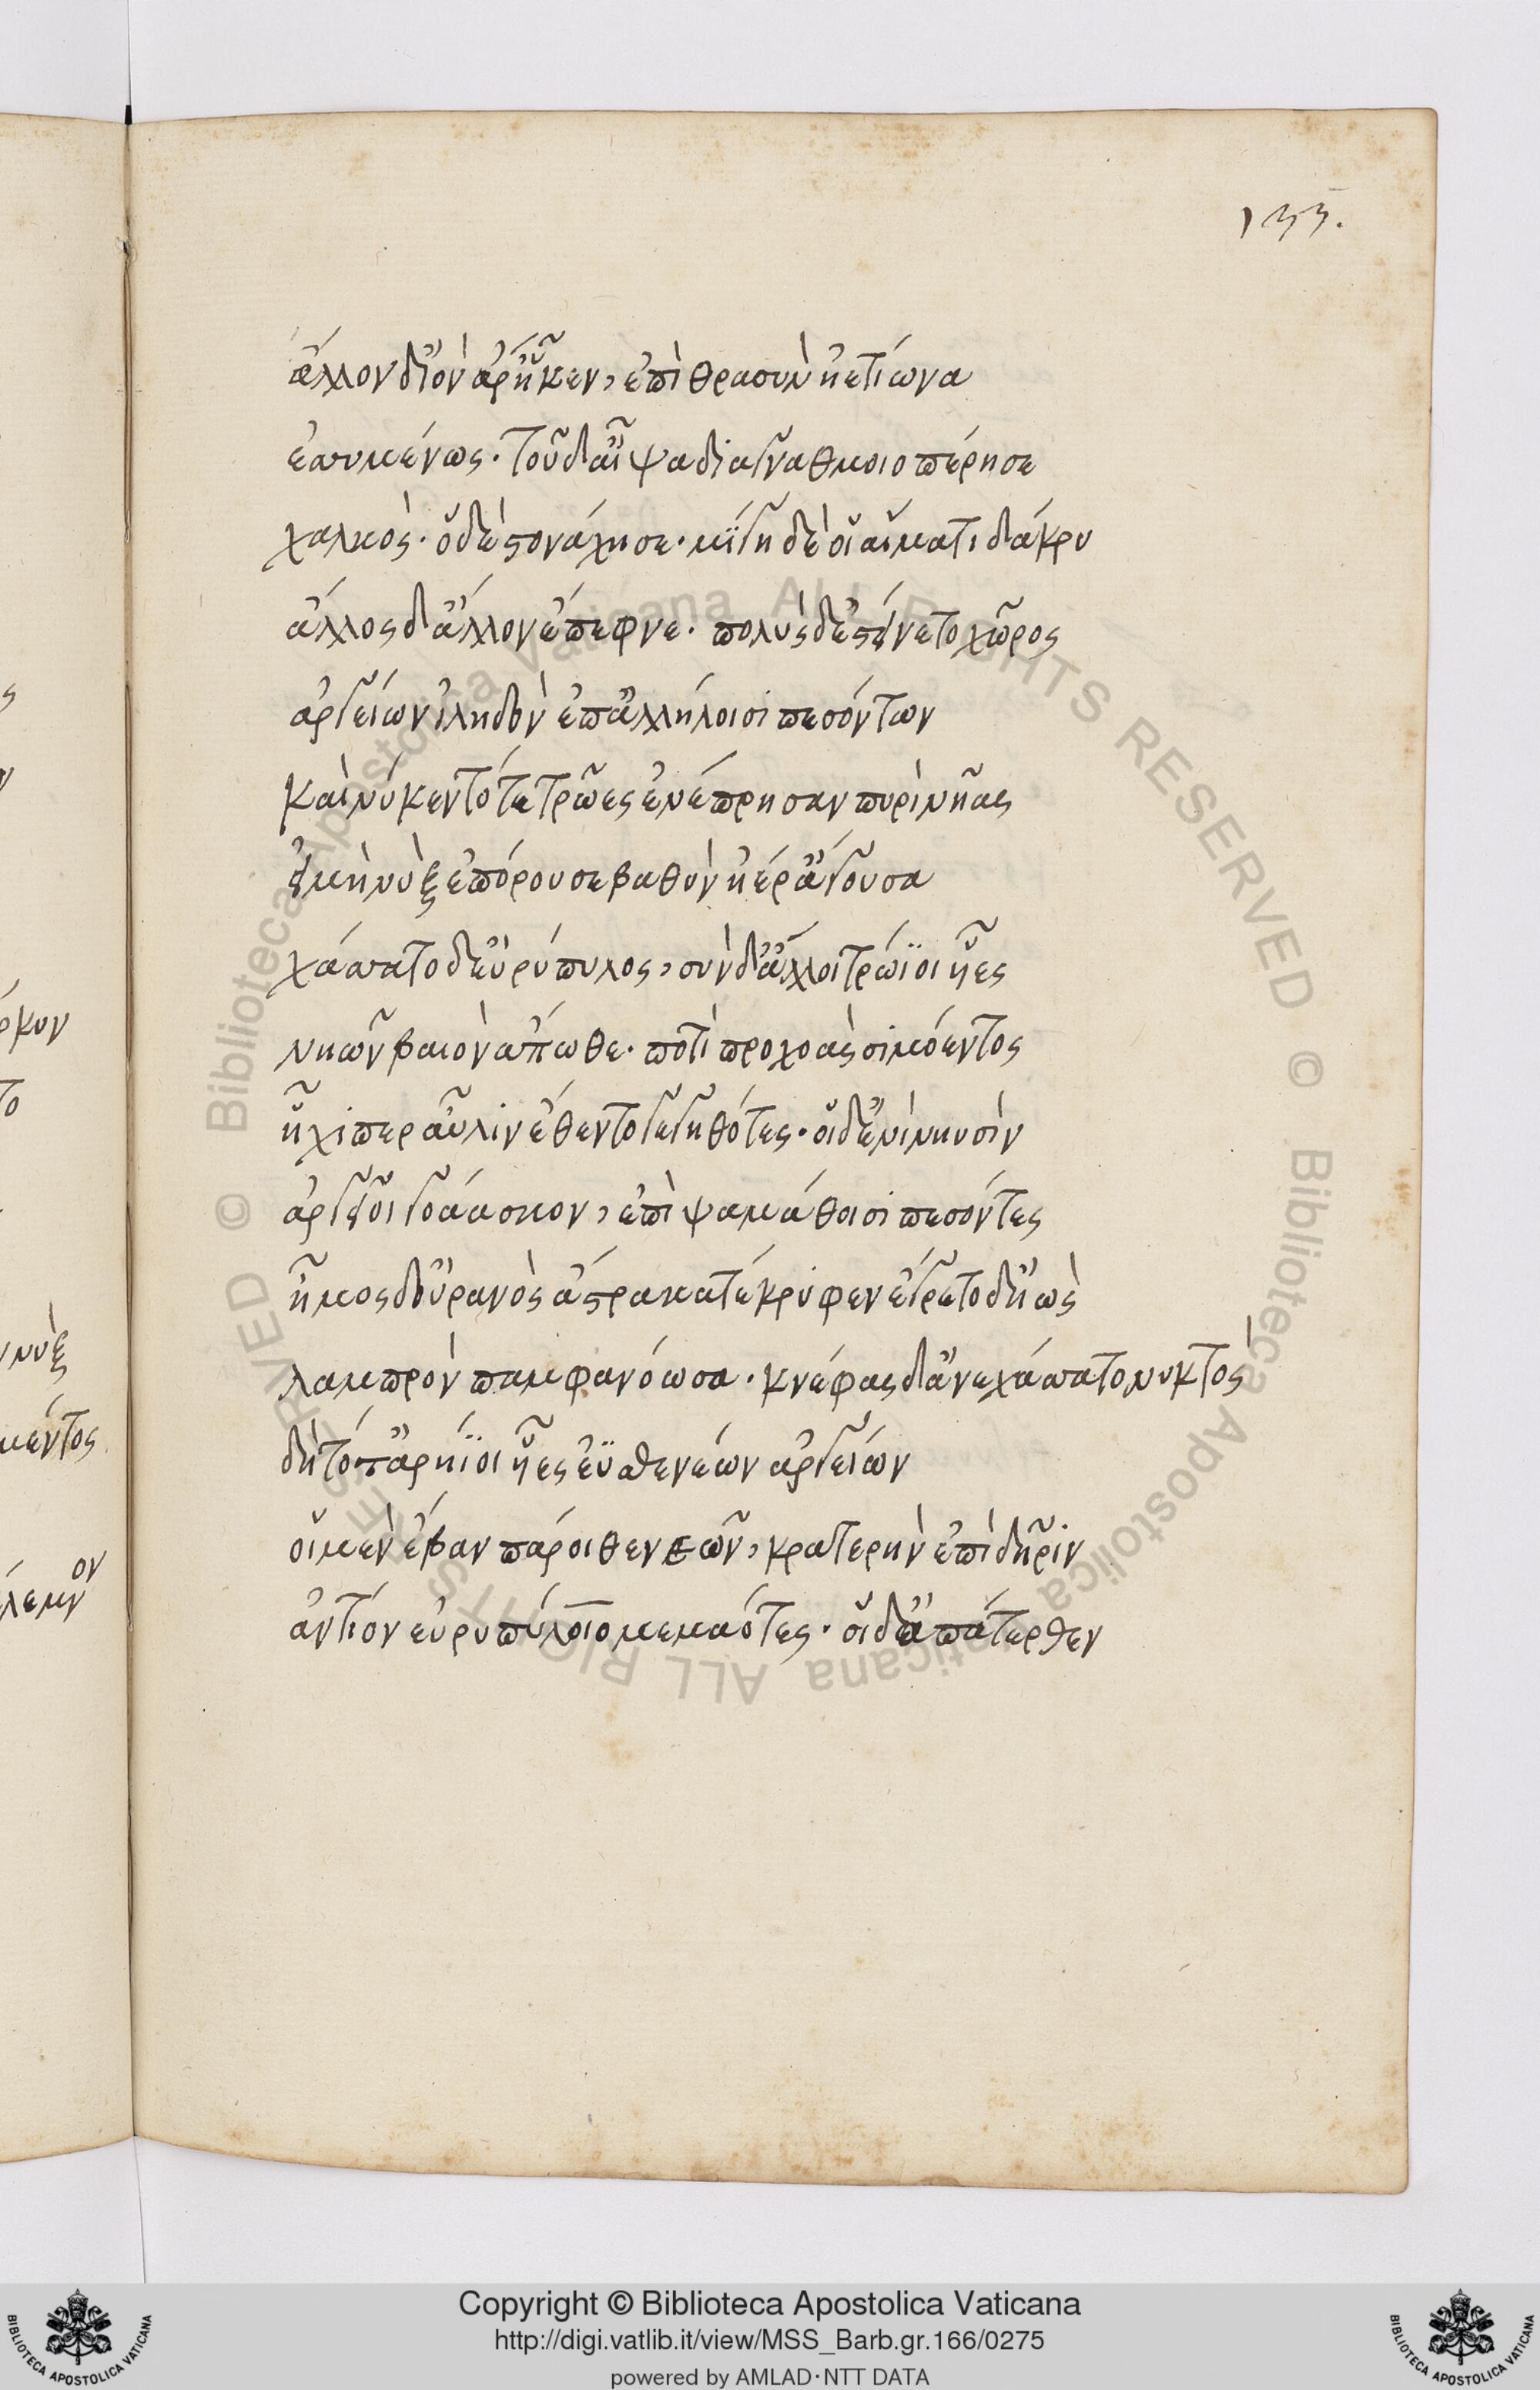 133.
ἄλλον δ' ἰὸν ἀφῆκεν, ἐπὶ θρασὺν ἠετίωνα
ἐσσυμένως. τοῦ δ' αἶψα διὰ γναθμοῖο πέρησε
χαλκὸς. ὁ δὲ στονάχησε. μίγη δέ οἱ αἵματι δάκρυ
ἄλλος δ' ἄλλον ἔπεφνε. πολὺς δ' ἐστείνετο χῶρος
ἀργείων ἰληδὸν ἐπ' ἀλλήλοισι πεσόντων
καὶ νύ κεν τότε τρῶες ἐνέπρησαν πυρὶ νῆας
εἰ μὴ νὺξ ἐπόρουσε βαθὺν ἠέρ' ἄγουσα
χάσσατο δ' εὐρύπυλος, σὺν δ' ἄλλοι τρώϊοι υἷες
νηῶν βαιὸν ἄπωθε. ποτὶ προχοὰς σιμόεντος
ἧχί περ αὖλιν ἔθεντο γεγηθότες. οἱ δ' ἐνὶ νηυσὶν
ἀργεῖοι γοάασκον, ἐπὶ ψαμάθοισι πεσόντες
ἦμος δ' οὐρανὸς ἄστρα κατέκρυφεν ἔγρετο δ' ἠὼς
λαμπρὸν παμφανόωσα. κνέφας δ' ἀνεχάσσατο νυκτὸς
δὴ τότ' ἀρήϊοι υἷες ἐϋσθενέων ἀργείων
οἱ μὲν ἔβαν πάροιθε νεῶν, κρατερὴν ἐπὶ δῆριν
ἀντίον εὐρυπύλοιο μεμαότες. οἱ δ' ἀπάτερθεν
ς
ν
ρκυν
το
νὺξ
μέντος
ον
λεμν
Biblioteca Apostolica Vaticana ALL RIGHTS RESERVED © Biblioteca Apostolica Vaticana ALL RIGHTS RESERVED ©
Copyright © Biblioteca Apostolica Vaticana
http://digi.vatlib.it/view/MSS_Barb.gr.166/0275
powered by AMLAD·NTT DATA
BIBLIOTECA APOSTOLICA VATICANA
BIBLIOTECA APOSTOLICA VATICANA